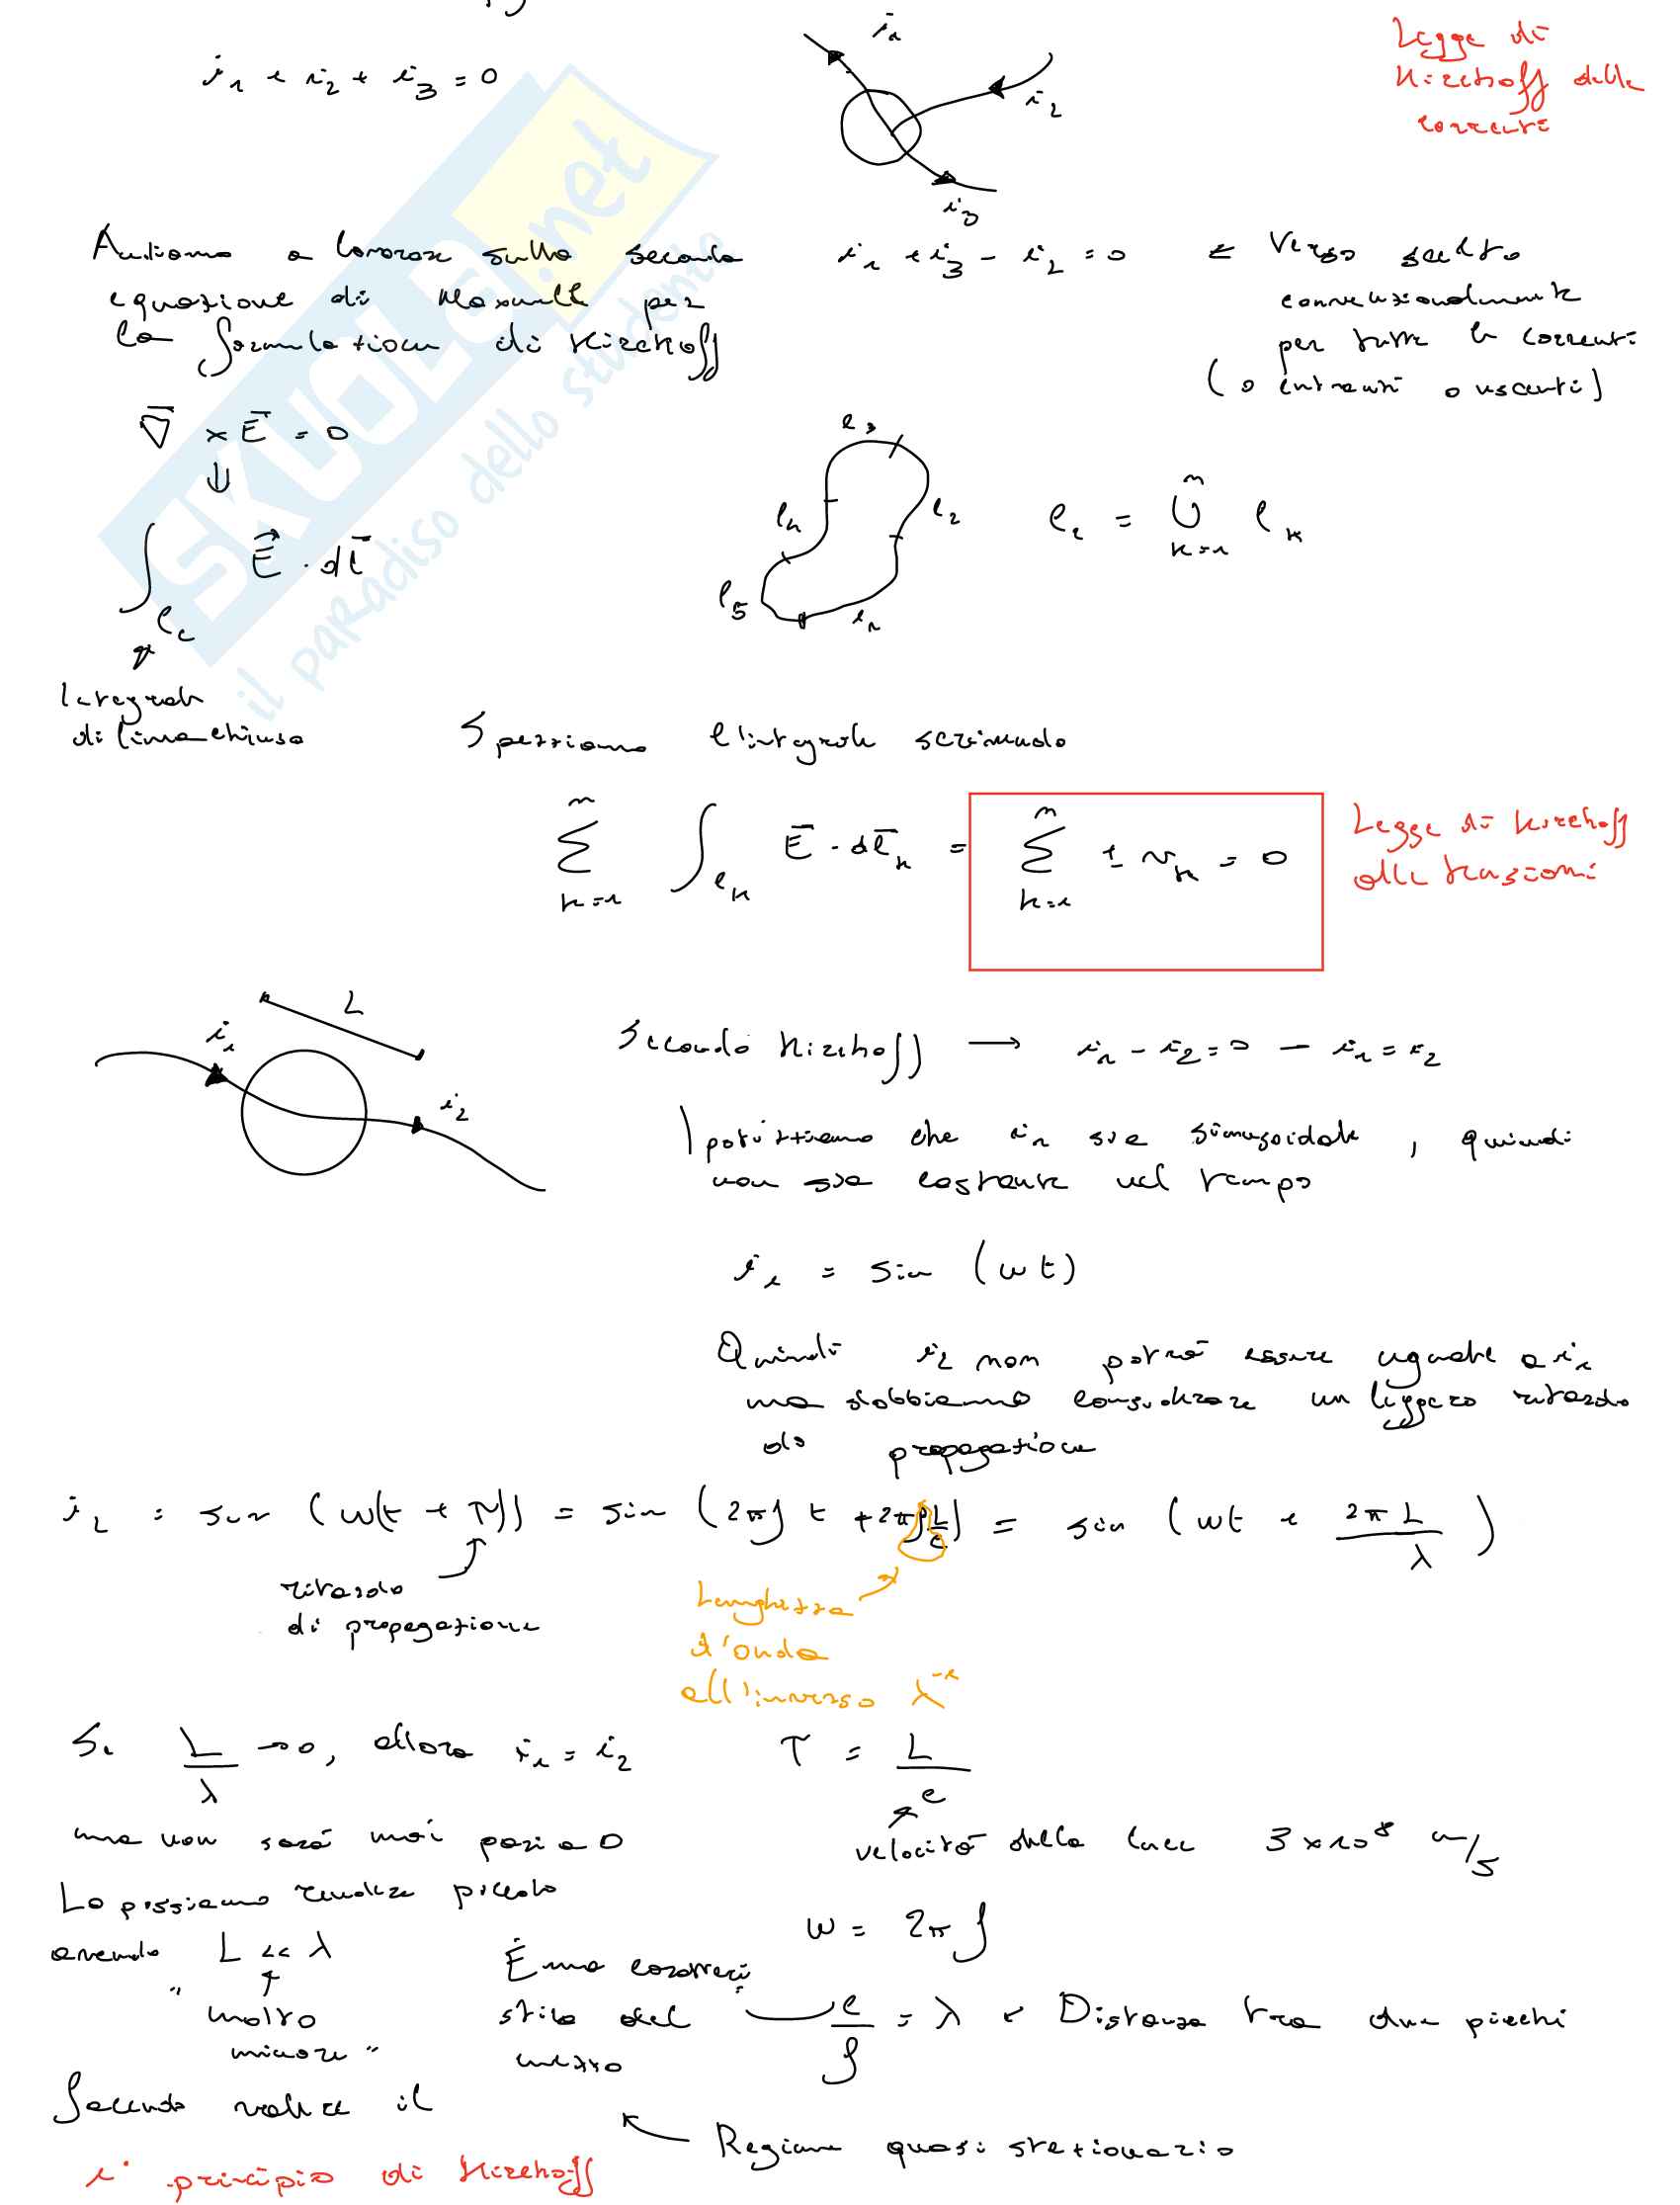 i1 + i2 + i3 = 0
i1
i2
i3
Legge di
Kirchoff delle
correnti
Andiamo a lavorare sulla seconda
equazione di Maxwell per
la formulazione di Kirchoff
i1 + i3 - i2 = 0 ← Verso scelto
convenzionalmente
per tutte le correnti
(o entranti o uscenti)
∇ × E = 0
⇓
∫ℓc E · dℓ
Integrale
di linea chiusa
ℓ3
ℓ4
ℓ2
ℓ5
ℓ1
ℓc = ⋃ k=1 n ℓk
Spezziamo l'integrale scrivendo
∑ k=1 n ∫ℓk E · dℓk = ∑ k=1 n ± vk = 0
Legge di Kirchoff
alle tensioni
L
i1
i2
Secondo Kirchoff → i1 - i2 = 0 – i1 = i2
Ipotizziamo che i1 sia sinusoidale, quindi
non sia costante nel tempo
i1 = sin (ωt)
Quindi i2 non potrà essere uguale a i1
ma dobbiamo considerare un leggero ritardo
di propagazione
i2 = sin (ω(t + τ)) = sin (2πf t + 2πf L/c) = sin (ωt + 2πL/λ)
ritardo
di propagazione
Lunghezza
d'onda
all'inverso λ⁻¹
Se L/λ → 0, allora i1 = i2
τ = L/c
ma non sarà mai pari a 0
velocità della luce 3 × 10⁸ m/s
Lo possiamo rendere piccolo
avendo L << λ
"molto
minore"
ω = 2πf
È una caratteri
stica del
mezzo
c/f = λ ← Distanza tra due picchi
facendo valere il
1° principio di Kirchoff
← Regime quasi stazionario